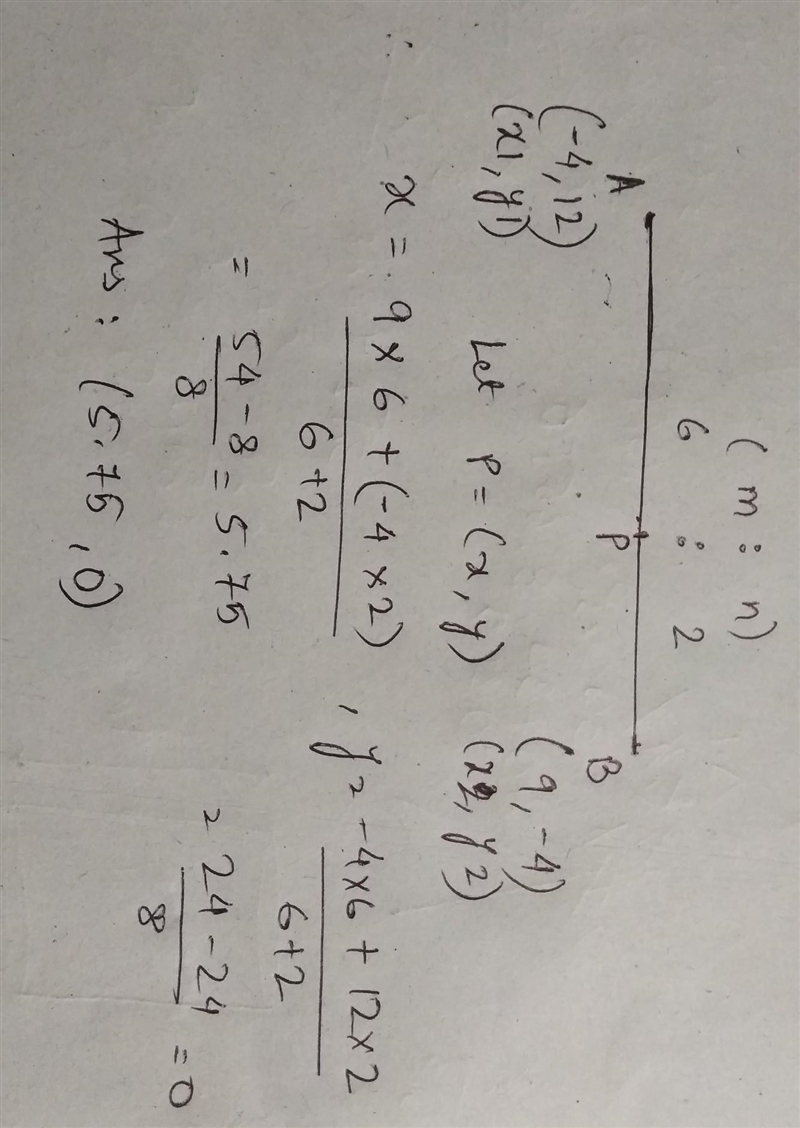 (m : n)
6 : 2
A P B
(-4, 12) (9, -4)
(x1, y1) Let P = (x, y) (x2, y2)
∴ x = 9 × 6 + (-4 × 2) / 6 + 2 , y = -4 × 6 + 12 × 2 / 6 + 2
= 54 - 8 / 8 = 5.75 = 24 - 24 / 8 = 0
Ans : (5.75, 0)